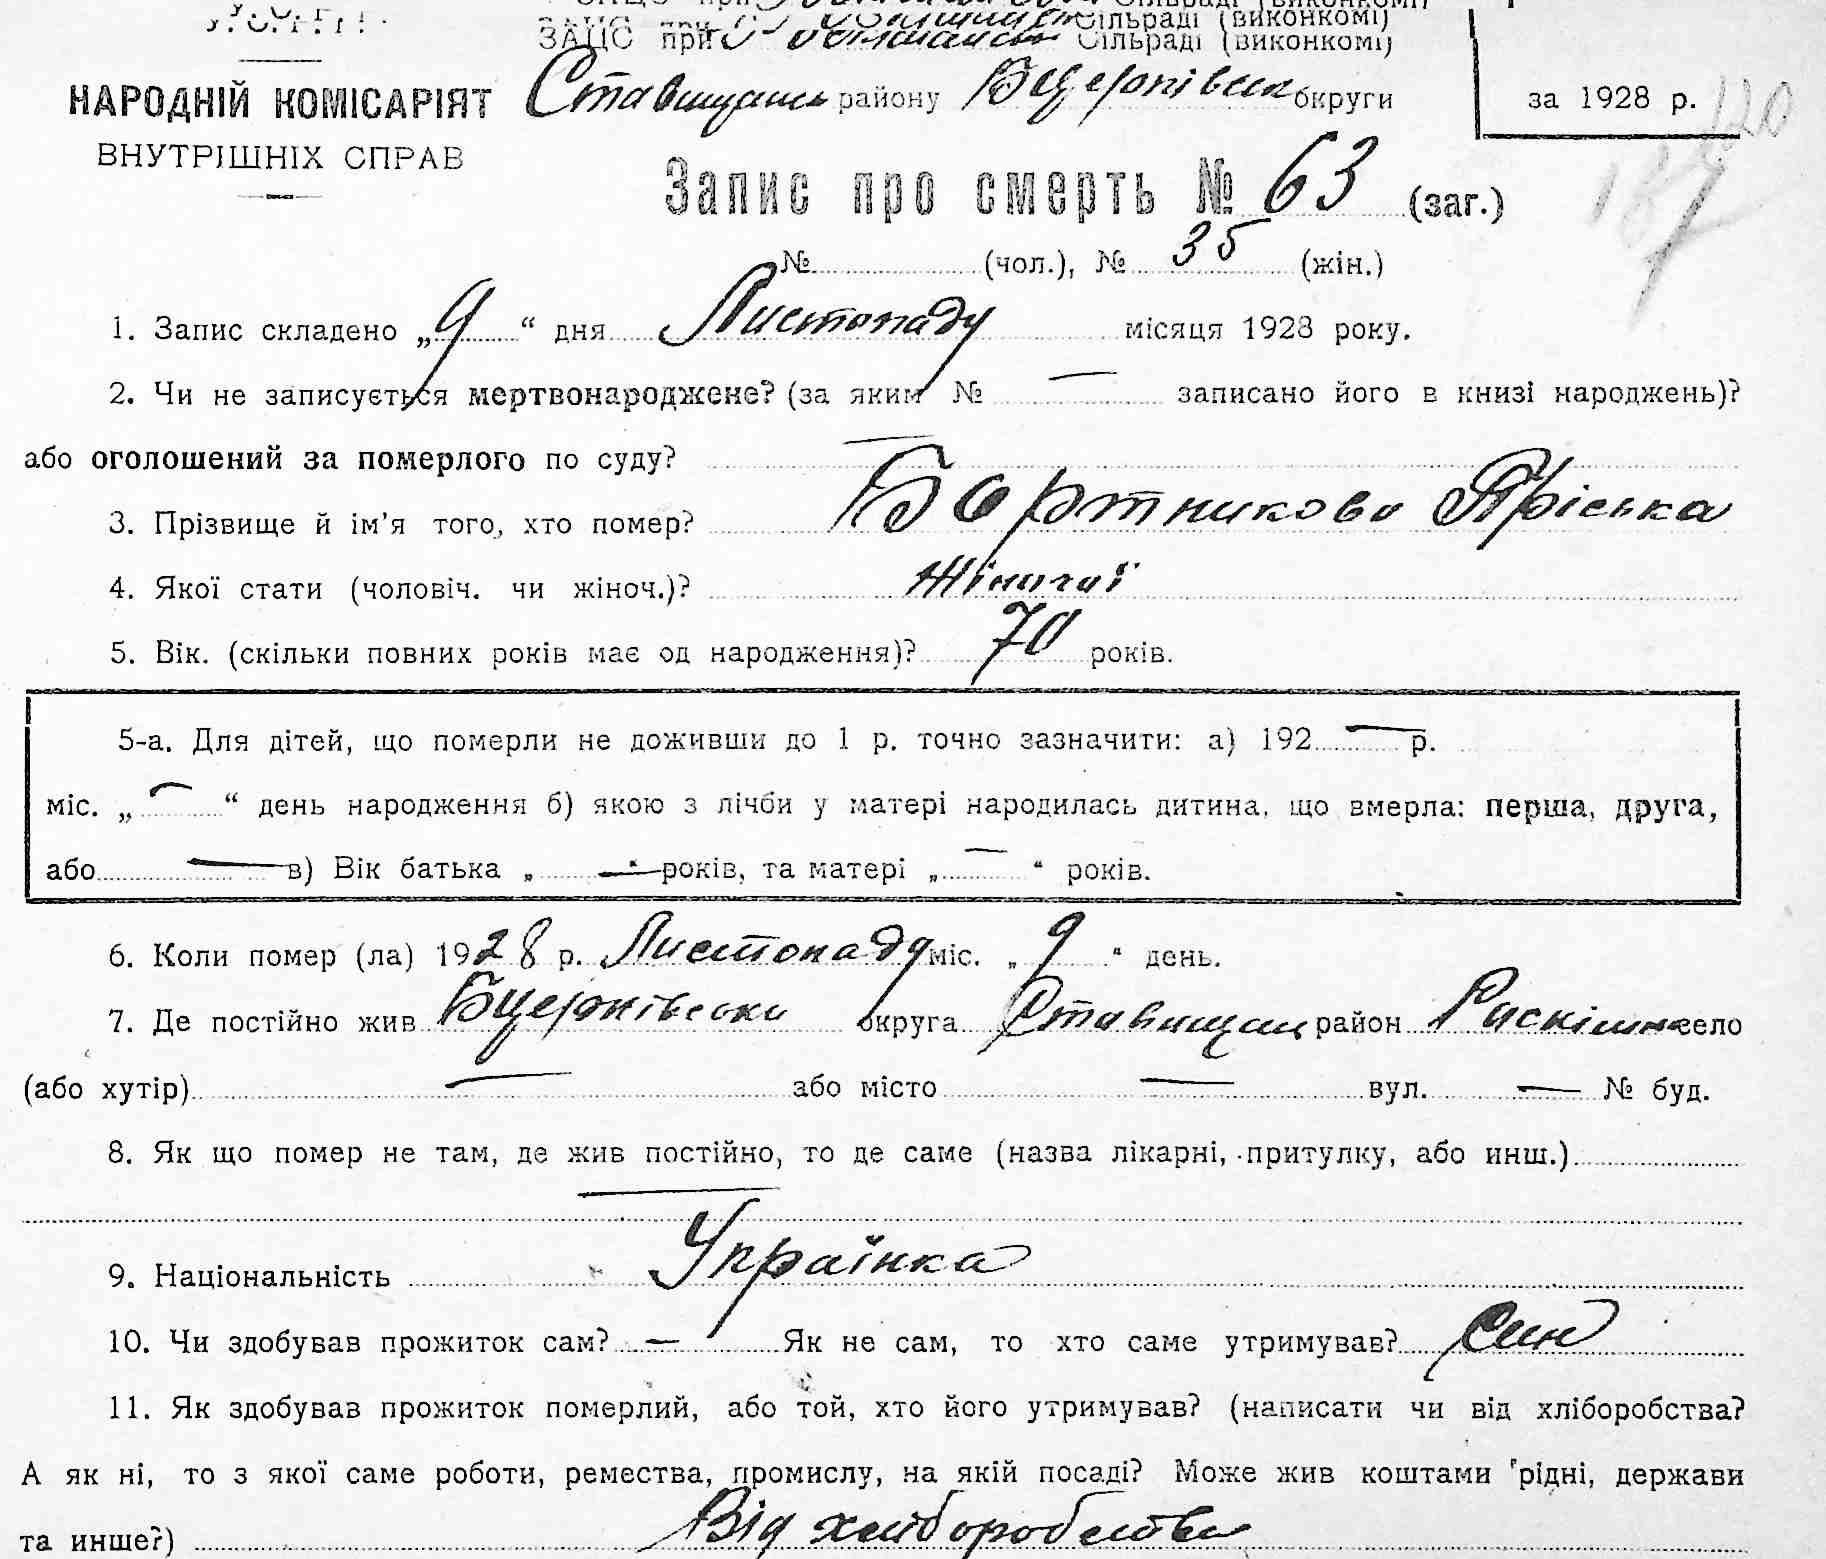 У.С.Р.Р.
ЗАЦС при Сільраді (виконкомі)
НАРОДНІЙ КОМІСАРІЯТ
ВНУТРІШНІХ СПРАВ
Ставищансь району БЦерківськ округи
за 1928 р.
120
187
Запис про смерть № 63 (заг.)
№ (чол.), № 35 (жін.)
1. Запис складено „9“ дня Листопаду місяця 1928 року.
2. Чи не записується мертвонароджене? (за яким № — записано його в книзі народжень)?
або оголошений за померлого по суду? —
3. Прізвище й ім'я того, хто помер? Бортникова Пріська
4. Якої стати (чоловіч. чи жіноч.)? Жіночої
5. Вік. (скільки повних років має од народження)? 70 років.
5-а. Для дітей, що померли не доживши до 1 р. точно зазначити: а) 192 — р.
міс. „ — “ день народження б) якою з лічби у матері народилась дитина, що вмерла: перша, друга,
або — в) Вік батька „ — “ років, та матері „ — “ років.
6. Коли помер (ла) 1928 р. Листопаду міс. „9“ день.
7. Де постійно жив БЦерківська округа Ставищан район Роскішна село
(або хутір) — або місто — вул. — № буд.
8. Як що помер не там, де жив постійно, то де саме (назва лікарні, притулку, або инш.)
—
9. Національність Українка
10. Чи здобував прожиток сам? — Як не сам, то хто саме утримував? Син
11. Як здобував прожиток померлий, або той, хто його утримував? (написати чи від хліборобства?
А як ні, то з якої саме роботи, ремества, промислу, на якій посаді? Може жив коштами рідні, держави
та инше?) Від хліборобства